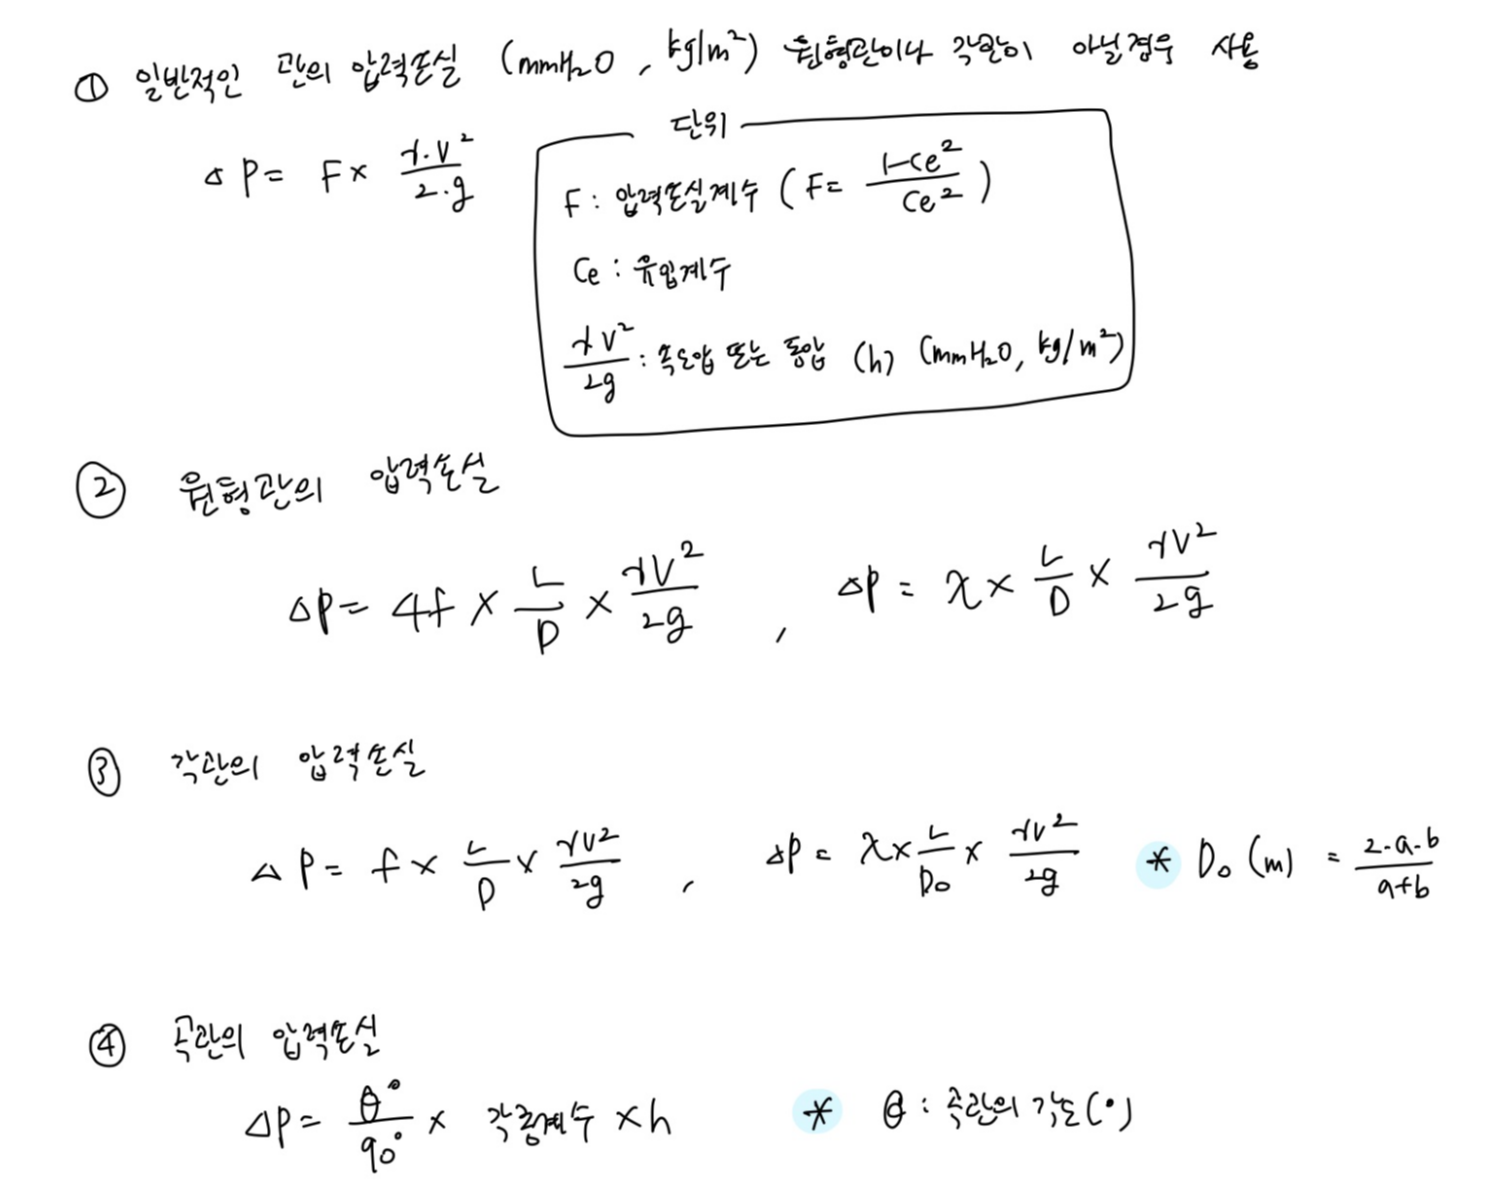 ① 일반적인 관의 압력손실 (mmH₂O , kg/m²) 원형관이나 각관이 아닐경우 사용
△P = F × γ·V² / 2·g
단위
F : 압력손실계수 (F = 1-Ce² / Ce²)
Ce : 유입계수
γV² / 2g : 속도압 또는 동압 (h) (mmH₂O, kg/m²)
② 원형관의 압력손실
△P = 4f × L/D × γV²/2g , △P = λ × L/D × γV²/2g
③ 각관의 압력손실
△P = f × L/D × γV²/2g , △P = λ × L/D₀ × γV²/2g * D₀ (m) = 2·a·b / a+b
④ 곡관의 압력손실
△P = θ°/90° × 각종계수 × h * θ : 곡관의 각도(°)